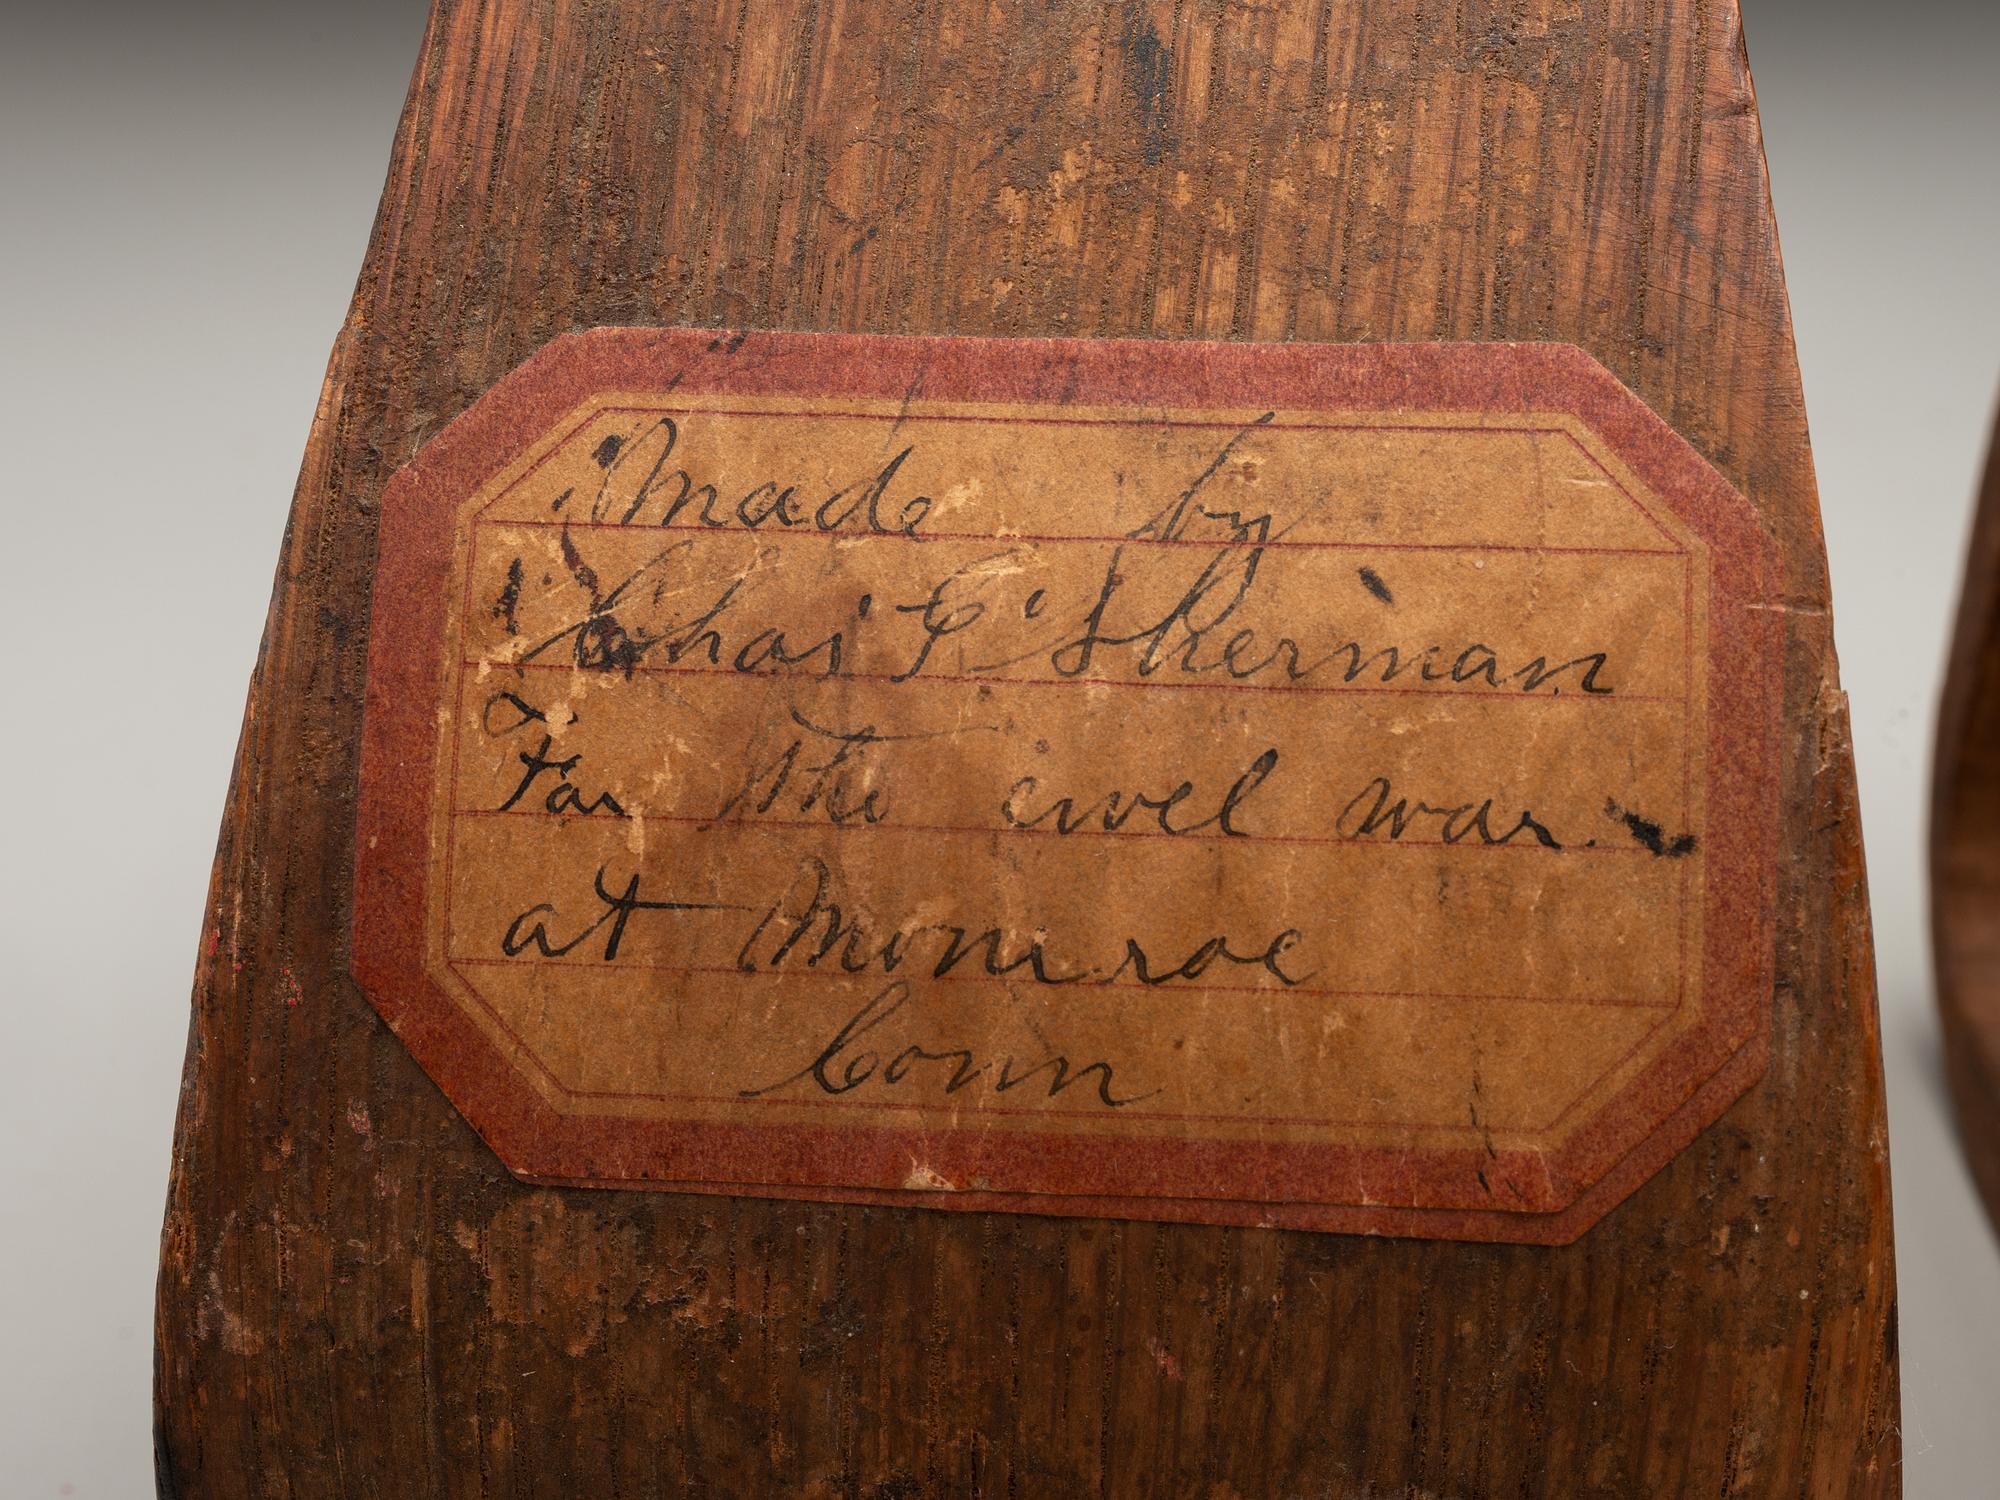 Made by
Chas' F' Sherman
For the civel war.
at Monroe
Conn